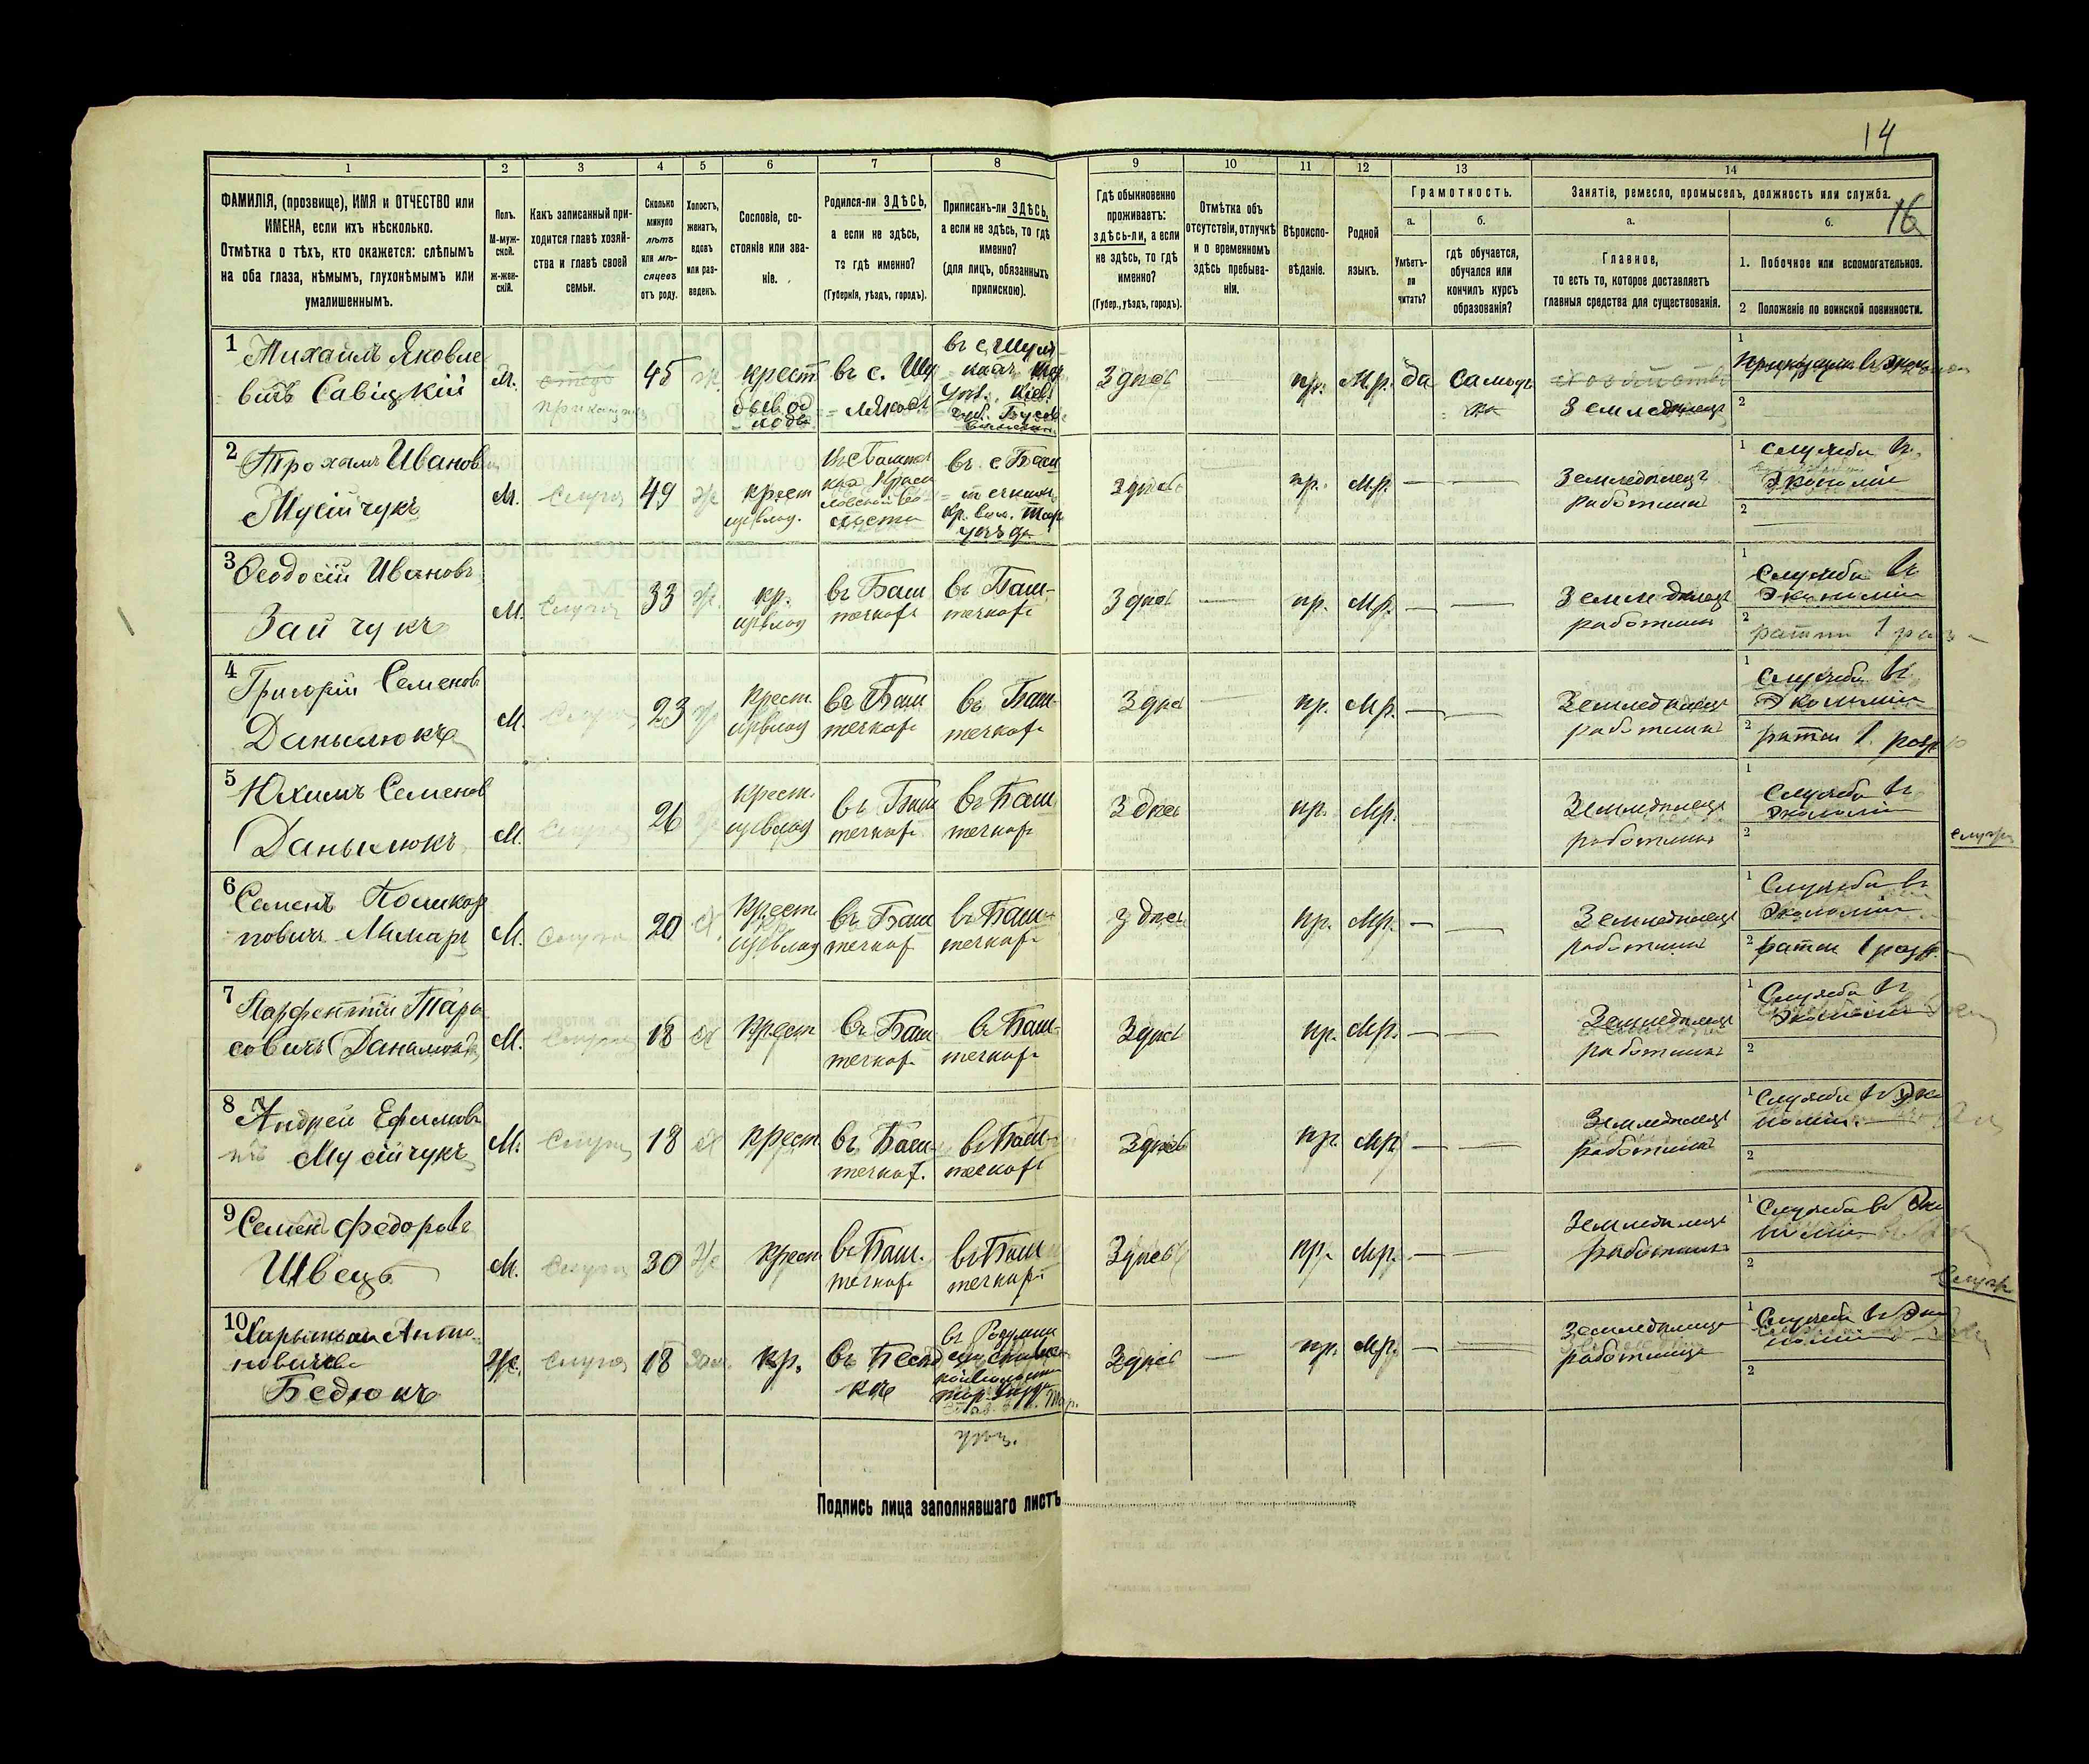 14
16
1
2
3
4
5
6
7
8
9
10
11
12
13
14
ФАМИЛІЯ, (прозвище), ИМЯ и ОТЧЕСТВО или
ИМЕНА, если ихъ нѣсколько.
Отмѣтка о тѣхъ, кто окажется: слѣпымъ
на оба глаза, нѣмымъ, глухонѣмымъ или
умалишеннымъ.
Полъ.
М-муж-
ской.
ж-жен-
скій.
Какъ записанный при-
ходится главѣ хозяй-
ства и главѣ своей
семьи.
Сколько
минуло
лѣтъ
или мѣ-
сяцевъ
отъ роду.
Холостъ,
женатъ,
вдовъ
или раз-
веденъ.
Сословіе, со-
стояніе или зва-
ніе.
Родился-ли ЗДѢСЬ,
а если не здѣсь,
то гдѣ именно?
(Губернія, уѣздъ, городъ).
Приписанъ-ли ЗДѢСЬ,
а если не здѣсь, то гдѣ
именно?
(для лицъ, обязанныхъ
припискою).
Гдѣ обыкновенно
проживаетъ:
здѣсь-ли, а если
не здѣсь, то гдѣ
именно?
(Губер., уѣздъ, городъ).
Отмѣтка объ
отсутствіи, отлучкѣ
и о временномъ
здѣсь пребыва-
ніи.
Вѣроиспо-
вѣданіе.
Родной
языкъ.
Грамотность.
а.
Умѣетъ-
ли
читать?
б.
гдѣ обучается,
обучался или
кончилъ курсъ
образованія?
Занятіе, ремесло, промыселъ, должность или служба.
а.
Главное,
то есть то, которое доставляетъ
главныя средства для существованія.
б.
1. Побочное или вспомогательное.
2 Положеніе по воинской повинности.
1 Михаилъ Яковле
вичъ Савіцкій
М.
45
ж.
крест
въ с. Шу
Здѣсь
пр.
М.р.
да
Земледѣлецъ
1
2
2 Трохимъ Иванов
Мусійчукъ
М.
Слуга
49
ж
крест
Здѣсь
пр.
М.р.
—
—
Земледѣлецъ
работникъ
1 Служба въ
Экономіи
2
3 Феодосій Ивановъ
Зайчукъ
М.
Слуга
33
ж.
кр.
въ Баш
течкахъ
въ Баш-
течкахъ
Здѣсь
—
пр.
М.р.
—
—
Земледѣлецъ
работникъ
1 Служба въ
Экономіи
2 ратни 1 раз
4 Григорій Семеновъ
Данылюкъ
М.
Слуга
23
ж
Крест.
въ Баш
течкахъ
въ Баш-
течкахъ
Здѣсь
—
пр.
М.р.
—
—
Земледѣлецъ
работникъ
1 Служба въ
Экономіи
2 ратни 1. разр
5 Юхимъ Семенов
Данылюкъ
М.
Слуга
26
ж
Крест.
въ Баш
течкахъ
въ Баш
течкахъ
Здѣсь
пр.
М.р.
Земледѣлецъ
работникъ
1 Служба въ
Экономіи
2
слуга
6 Семенъ Поликар
повичъ Мимаръ
М.
Слуга
20
Х.
Крест.
въ Баш
течках
въ Баш-
течкахъ
Здѣсь
пр.
М.р.
—
—
Земледѣлецъ
работникъ
1 Служба въ
Экономіи
2 ратни 1 разр.
7 Парфентій Тара
совичъ Данилюкъ
М.
Слуга
18
Х
Крест
въ Баш-
течках.
въ Баш-
течкахъ
Здѣсь
пр.
М.р.
—
—
Земледѣлецъ
работникъ
1 Служба въ
Экономіи
2
8 Андрей Ефимов
ичъ Мусійчукъ
М.
Слуга
18
Х
Крест.
въ Баш-
течках.
въ Баш-
течкахъ
Здѣсь
пр
М.р.
—
—
Земледѣлецъ
работникъ
1 Служба въ Эко
номіи.
2
9 Семен Федоровъ
Швецъ
М.
Слуга
30
Ж
Крест
въ Баш.
течках.
въ Баш
течкахъ
Здѣсь
пр.
М.р.
—
—
Земледѣлецъ
работникъ
1 Служба въ Эко
номіи
2
Слуга
10 Харытын Анто-
новичев
Бедюкъ
Ж.
Слуга
18
Зам.
кр.
Здѣсь
—
пр.
М.р.
—
Земледѣлица
работница
1 Служба въ Эко
номіи
2
Подпись лица заполнявшаго листъ